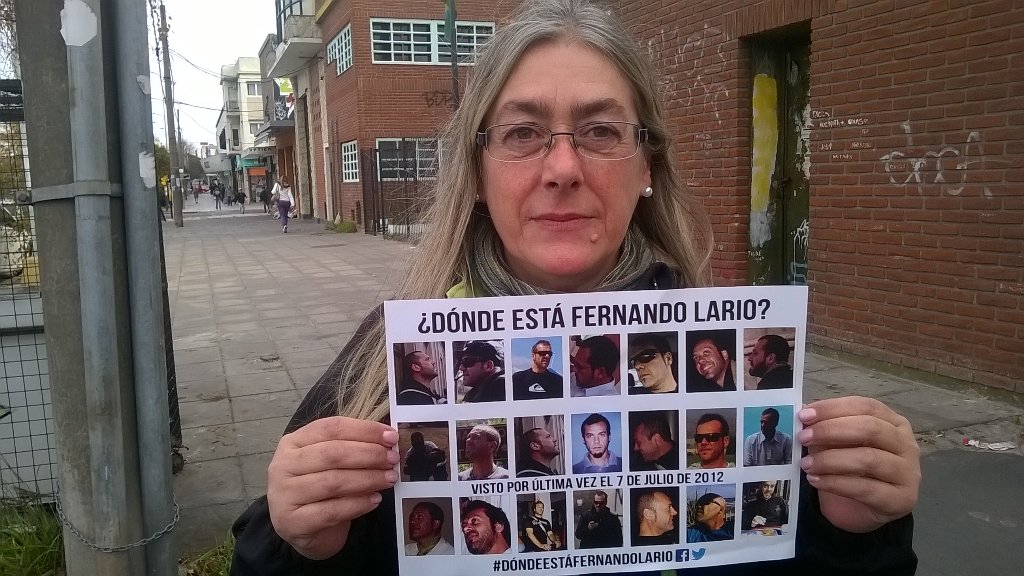 ¿DÓNDE ESTÁ FERNANDO LARIO?
VISTO POR ÚLTIMA VEZ EL 7 DE JULIO DE 2012
#DÓNDEESTÁFERNANDOLARIO